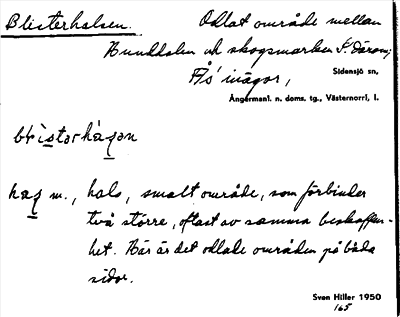 Blisterhalsen.
Odlat område mellan
Hunddalen och skogsmarken S. därom;
Ås' inägor,
Sidensjö sn,
Ångermanl. n. doms. tg., Västernorrl, l.
has m., hals, smalt område, som förbinder
två större, oftast av samma beskaffen-
het. Här är det odlade områden på båda
sidor.
Sven Hiller 1950
165